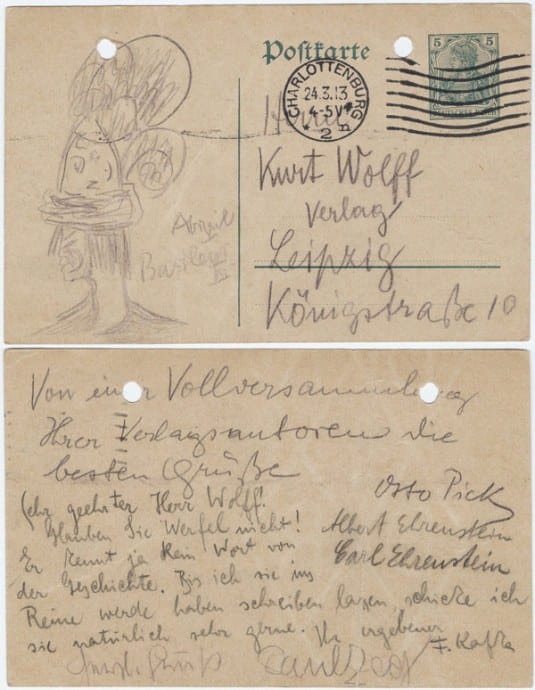 Postkarte
5
DEUTSCHES REICH
CHARLOTTENBURG
24.3.13
4-5V
2
Herrn
Kurt Wolff
Verlag
Leipzig
Königstraße 10
Von einer Vollversammlung
Ihrer Verlagsautoren die
besten Grüße
Otto Pick
Albert Ehrenstein
Carl Ehrenstein
Sehr geehrter Herr Wolff!
Glauben Sie Werfel nicht!
Er kennt ja kein Wort von
der Geschichte. Bis ich sie ins
Reine werde haben schreiben lassen, schicke ich
sie natürlich sehr gerne. Ihr ergebener
F. Kafka